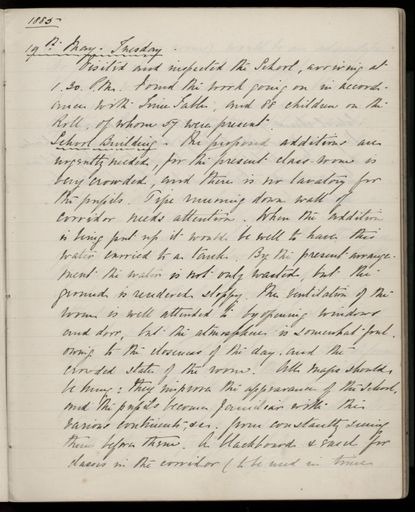 1885
19th May. Tuesday.
Visited and inspected the School, arriving at
1.20. P.M. Found the work going on in accord-
ance with Time Table, and 88 children on the
Roll, of whom 57 were present.
School Building - The proposed additions are
urgently needed, for the present class-room is
very crowded, and there is no lavatory for
the pupils. Pipe running down wall of
corridor needs attention. When the addition
is being put up it would be well to have this
water carried to a tank. By the present arrange-
ment the water is not only wasted, but the
ground is rendered sloppy. The ventilation of the
room is well attended to by opening windows
and door, but the atmosphere is somewhat foul
owing to the closeness of the day, and the
crowded state of the room. All maps should
be hung: they improve the appearance of the School,
and the pupils become familiar with the
various continents, &c. from constantly seeing
them before them. A blackboard & easel for
classes in the corridor (to be used in time